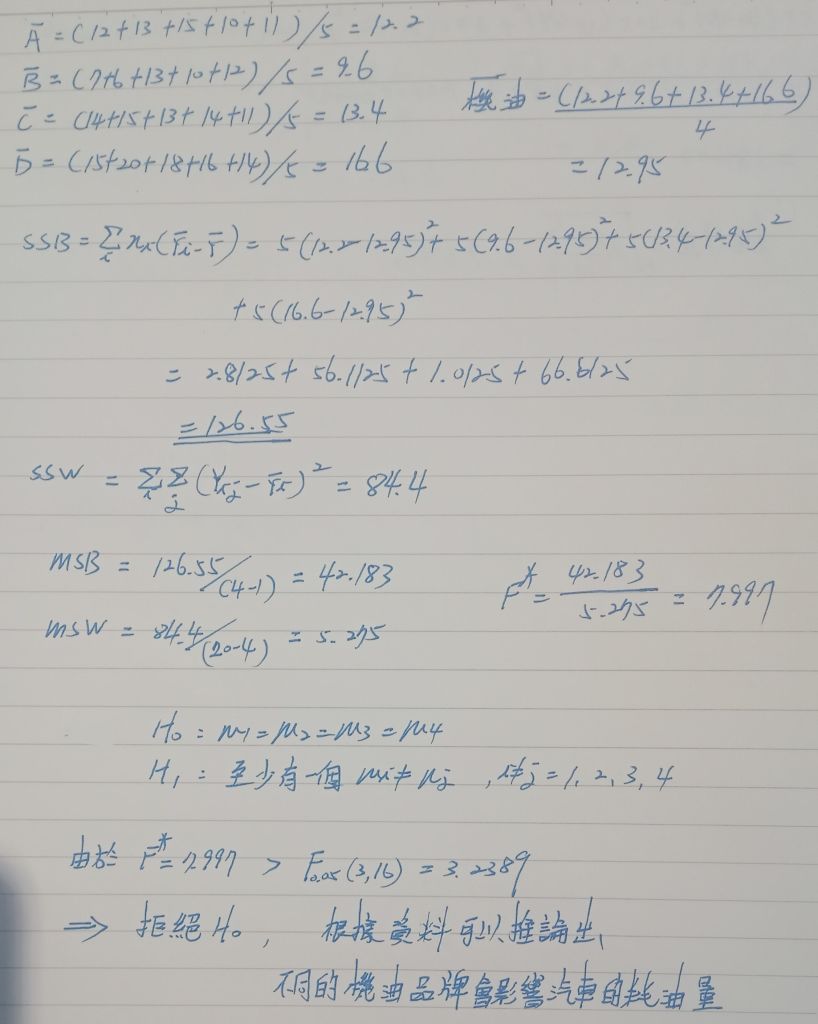 Ā = (12+13+15+10+11)/5 = 12.2
B̄ = (7+6+13+10+12)/5 = 9.6
C̄ = (14+15+13+14+11)/5 = 13.4
D̄ = (15+20+18+16+14)/5 = 16.6
機油 = (12.2+9.6+13.4+16.6)/4
= 12.95
SSB = Σᵢ nᵢ(Ȳᵢ-Ȳ) = 5(12.2-12.95)² + 5(9.6-12.95)² + 5(13.4-12.95)²
+ 5(16.6-12.95)²
= 2.8125 + 56.1125 + 1.0125 + 66.6125
= 126.55
SSW = Σᵢ Σⱼ (Yᵢⱼ-Ȳᵢ)² = 84.4
MSB = 126.55/(4-1) = 42.183
MSW = 84.4/(20-4) = 5.275
F* = 42.183/5.275 = 7.997
H₀ : μ1=μ2=μ3=μ4
H₁ : 至少有一個 μi≠μj , i≠j=1, 2, 3, 4
由於 F*=7.997 > F0.05(3,16) = 3.2389
⇒ 拒絕 H₀, 根據資料可以推論出,
不同的機油品牌會影響汽車的耗油量